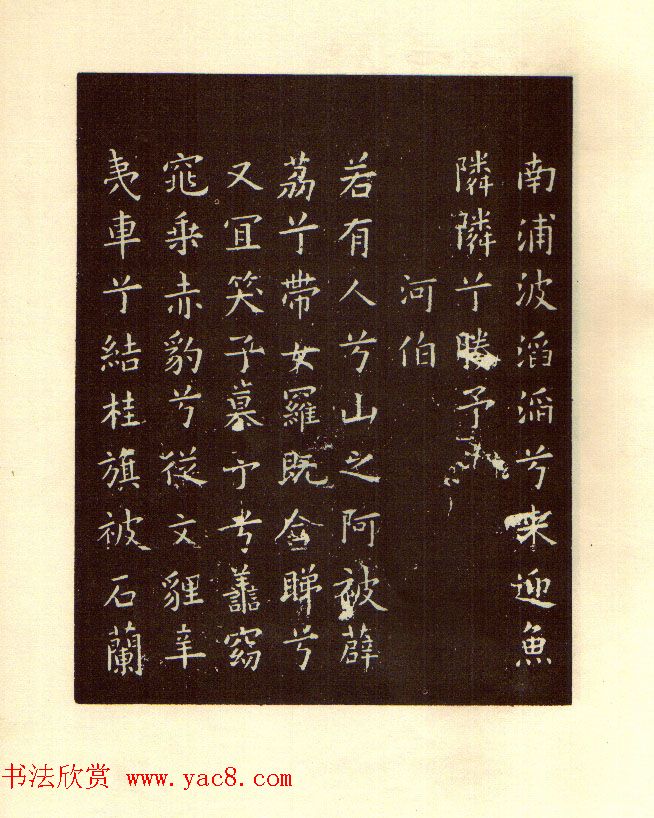 南浦波滔滔兮来迎魚
隣隣兮媵予
河伯
若有人兮山之阿被薜
荔兮帶女羅既含睇兮
又宜笑子慕予兮善窈
窕乘赤豹兮從文貍辛
夷車兮結桂旗被石蘭
书法欣赏 www.yac8.com